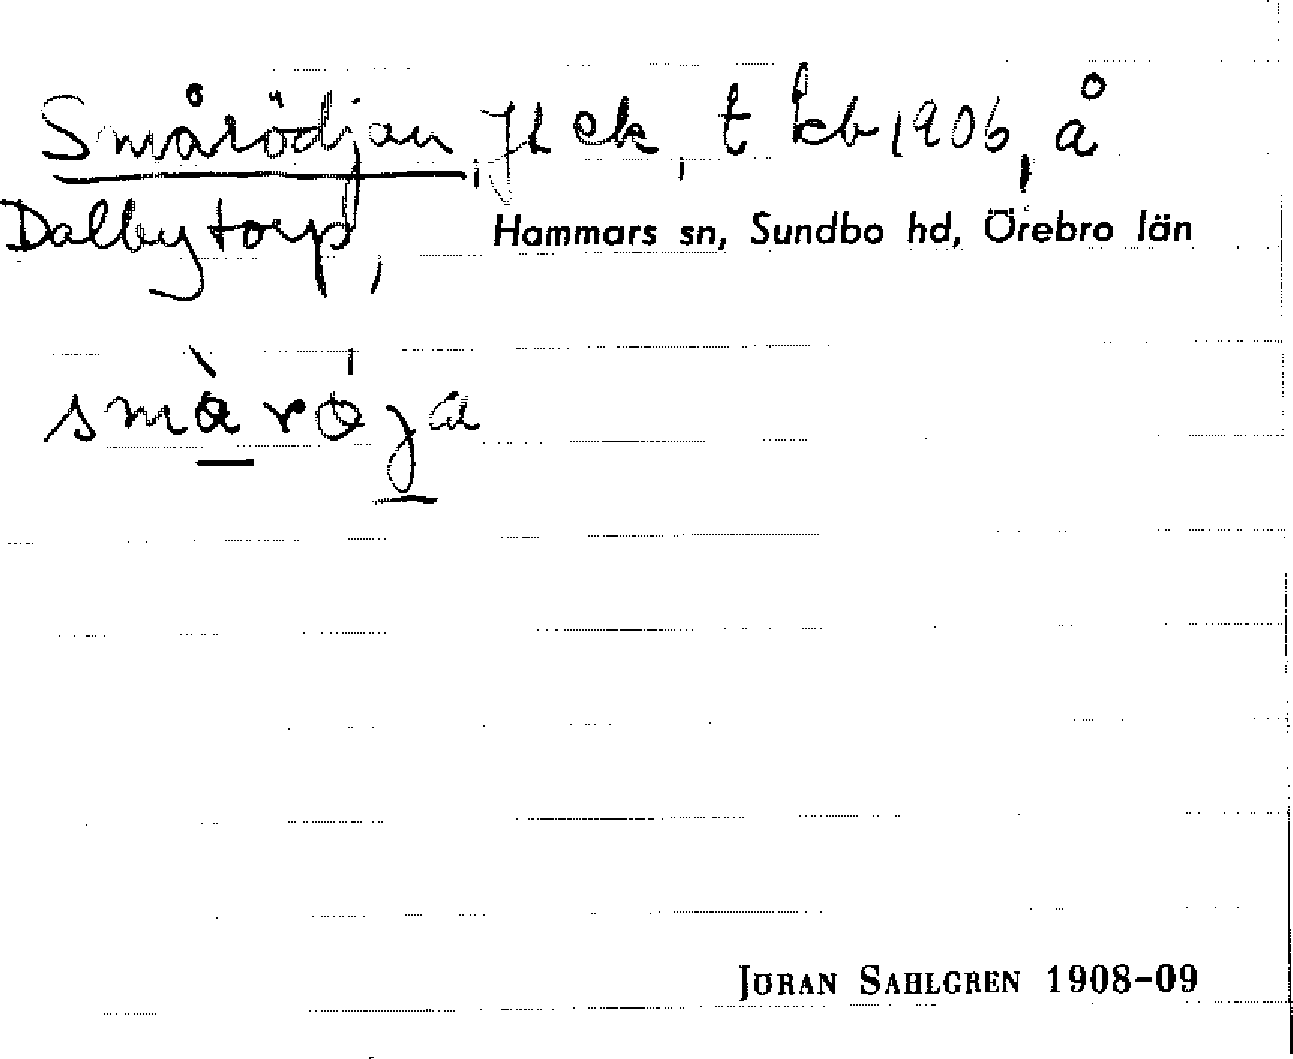 Smårödjan, Jl ek, t kb 1906, å
Dalbytorp, Hammars sn, Sundbo hd, Örebro län
smàrȯja
JÖRAN SAHLGREN 1908-09